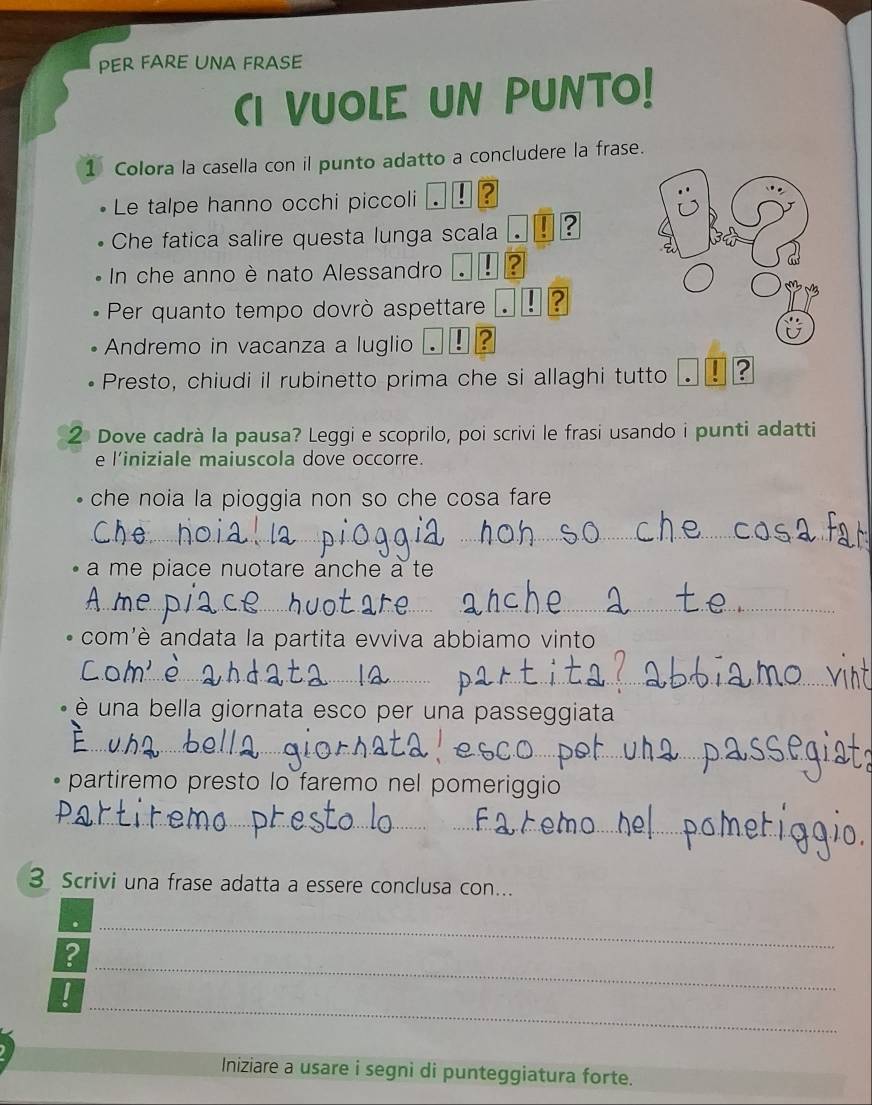 PER FARE UNA FRASE
CI VUOLE UN PUNTO!
1 Colora la casella con il punto adatto a concludere la frase.
• Le talpe hanno occhi piccoli . ! ?
• Che fatica salire questa lunga scala . ! ?
• In che anno è nato Alessandro . ! ?
• Per quanto tempo dovrò aspettare . ! ?
• Andremo in vacanza a luglio . ! ?
• Presto, chiudi il rubinetto prima che si allaghi tutto . ! ?
2 Dove cadrà la pausa? Leggi e scoprilo, poi scrivi le frasi usando i punti adatti
e l'iniziale maiuscola dove occorre.
• che noia la pioggia non so che cosa fare
Che noia! la pioggia non so che cosa far
• a me piace nuotare anche a te
A me piace nuotare anche a te.
• com'è andata la partita evviva abbiamo vinto
Com'è andata la partita? abbiamo vint
• è una bella giornata esco per una passeggiata
È una bella giornata! esco per una passegiata
• partiremo presto lo faremo nel pomeriggio
Partiremo presto lo Faremo nel pomeriggio.
3 Scrivi una frase adatta a essere conclusa con...
.
?
!
2
Iniziare a usare i segni di punteggiatura forte.